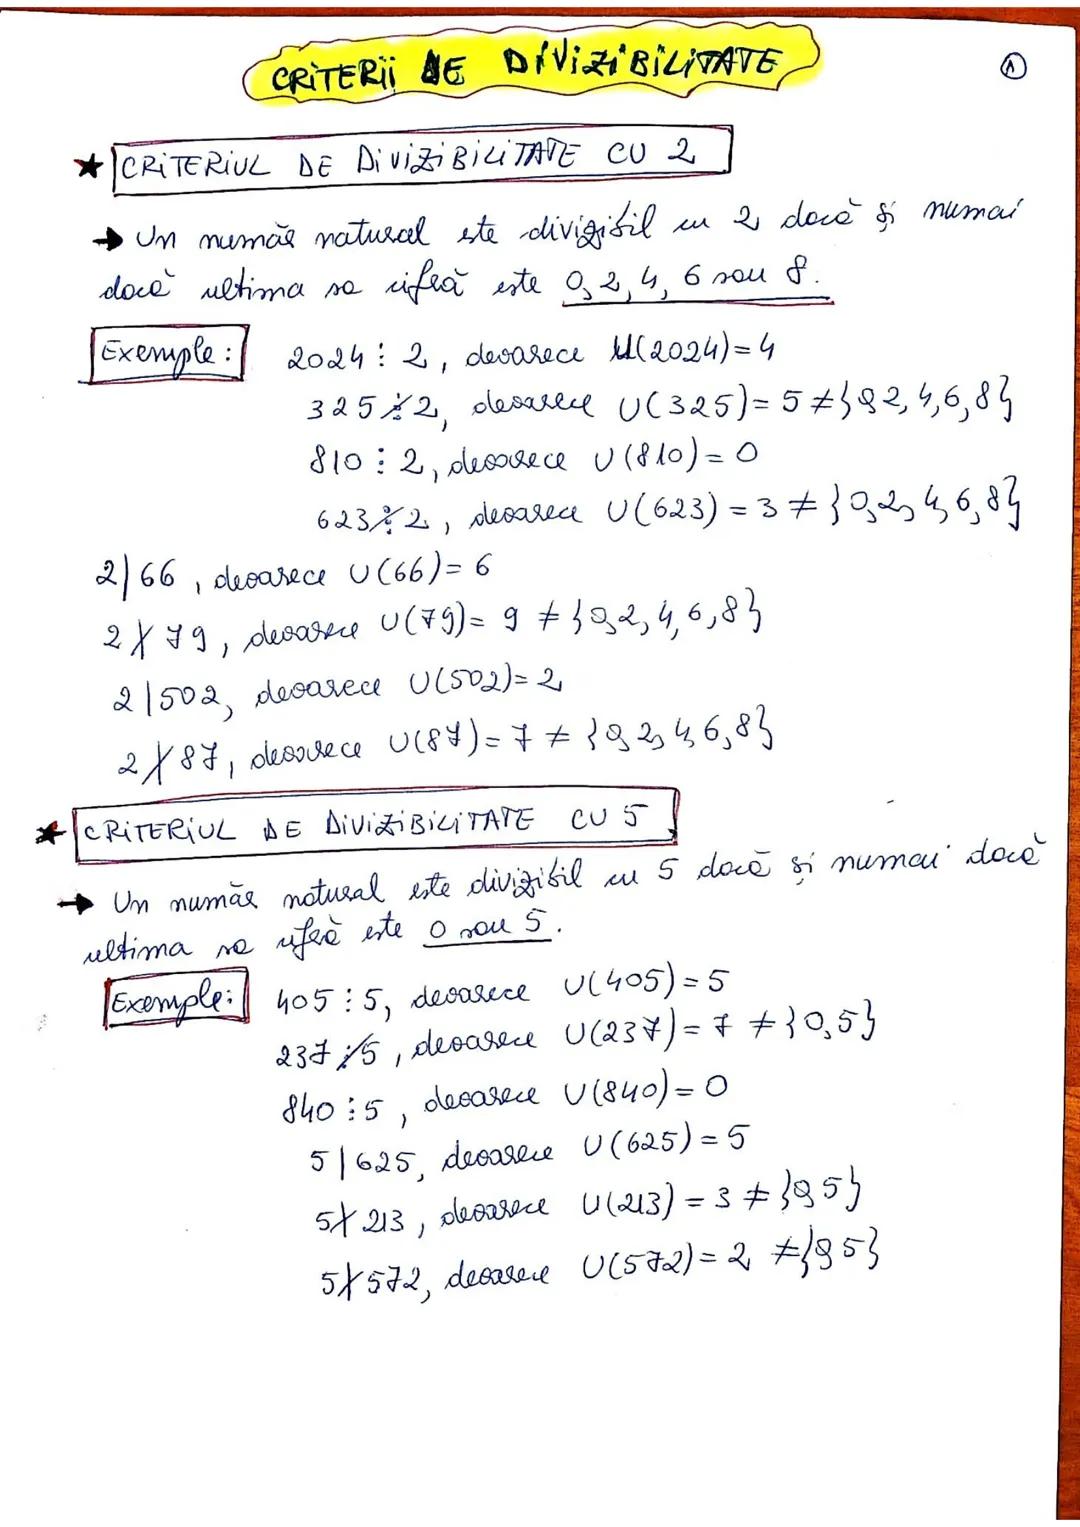 CRITERII DE DIVIZIBILITATE
1
★ CRITERIUL DE DIVIZIBILITATE CU 2
→ Un număr natural este divizibil cu 2 dacă și numai
dacă ultima sa cifră este 0, 2, 4, 6 sau 8.
Exemple: 2024 ⋮ 2, deoarece U(2024) = 4
325 ⋮̸ 2, deoarece U(325) = 5 ≠ {0, 2, 4, 6, 8}
810 ⋮ 2, deoarece U(810) = 0
623 ⋮̸ 2, deoarece U(623) = 3 ≠ {0, 2, 4, 6, 8}
2 | 66, deoarece U(66) = 6
2 ∤ 79, deoarece U(79) = 9 ≠ {0, 2, 4, 6, 8}
2 | 502, deoarece U(502) = 2
2 ∤ 87, deoarece U(87) = 7 ≠ {0, 2, 4, 6, 8}
★ CRITERIUL DE DIVIZIBILITATE CU 5
→ Un număr natural este divizibil cu 5 dacă și numai dacă
ultima sa cifră este 0 sau 5.
Exemple: 405 ⋮ 5, deoarece U(405) = 5
237 ⋮̸ 5, deoarece U(237) = 7 ≠ {0, 5}
840 ⋮ 5, deoarece U(840) = 0
5 | 625, deoarece U(625) = 5
5 ∤ 213, deoarece U(213) = 3 ≠ {0, 5}
5 ∤ 572, deoarece U(572) = 2 ≠ {0, 5}